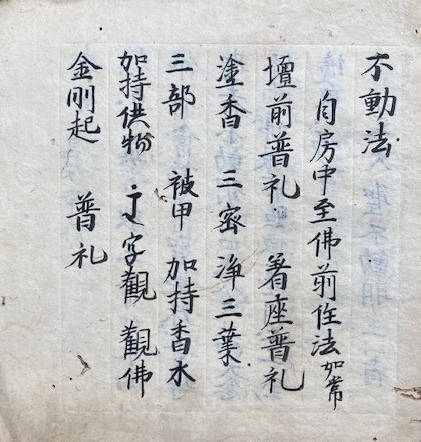 不動法
自房中至佛前作法如常
壇前普礼 着座普礼
塗香 三密 浄三業
三部 被甲 加持香水
加持供物 字觀 觀佛
金剛起 普礼